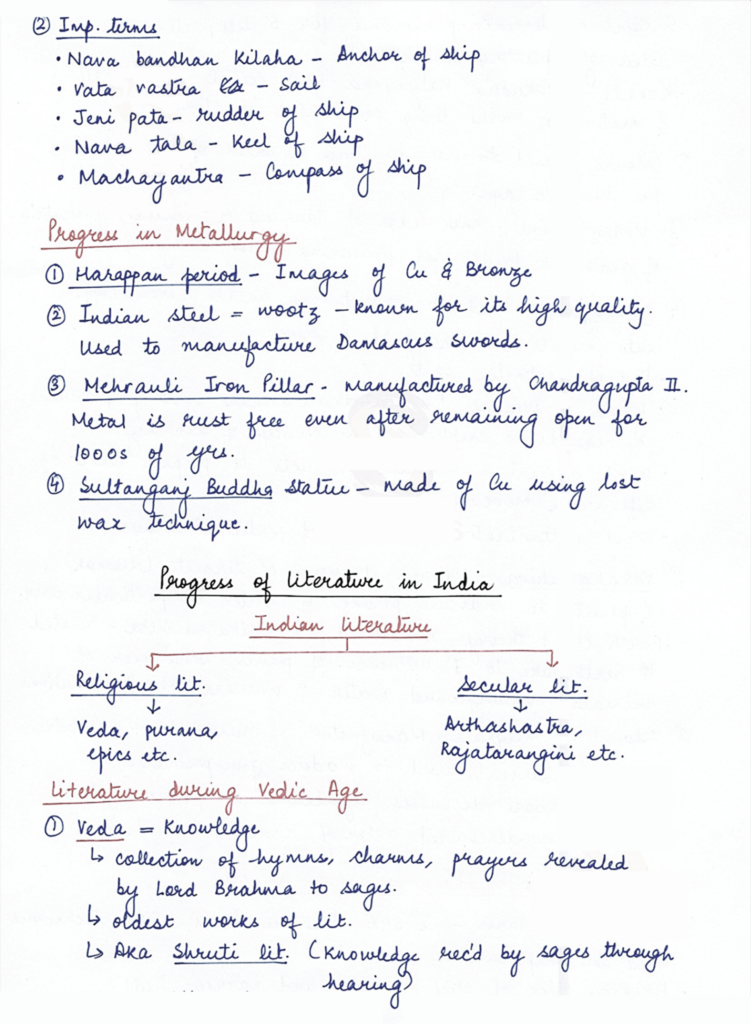 ② Imp. terms
• Nava bandhan Kilaha – Anchor of ship
• Vata vastra – Sail
• Jeni pata – rudder of ship
• Nava tala – Keel of ship
• Machayantra – Compass of ship
Progress in Metallurgy
① Harappan period – Images of Cu & Bronze
② Indian steel = wootz – known for its high quality.
Used to manufacture Damascus swords.
③ Mehrauli Iron Pillar - manufactured by Chandragupta II.
Metal is rust free even after remaining open for
1000s of yrs.
④ Sultanganj Buddha statue – made of Cu using lost
wax technique.
Progress of literature in India
Indian literature
Religious lit.
secular lit.
↓
↓
Veda, purana,
epics etc.
Arthashastra,
Rajatarangini etc.
Literature during Vedic Age
① Veda = Knowledge
↳ collection of hymns, charms, prayers revealed
by Lord Brahma to sages.
↳ oldest works of lit.
↳ Aka Shruti lit. (Knowledge rec'd by sages through
hearing)